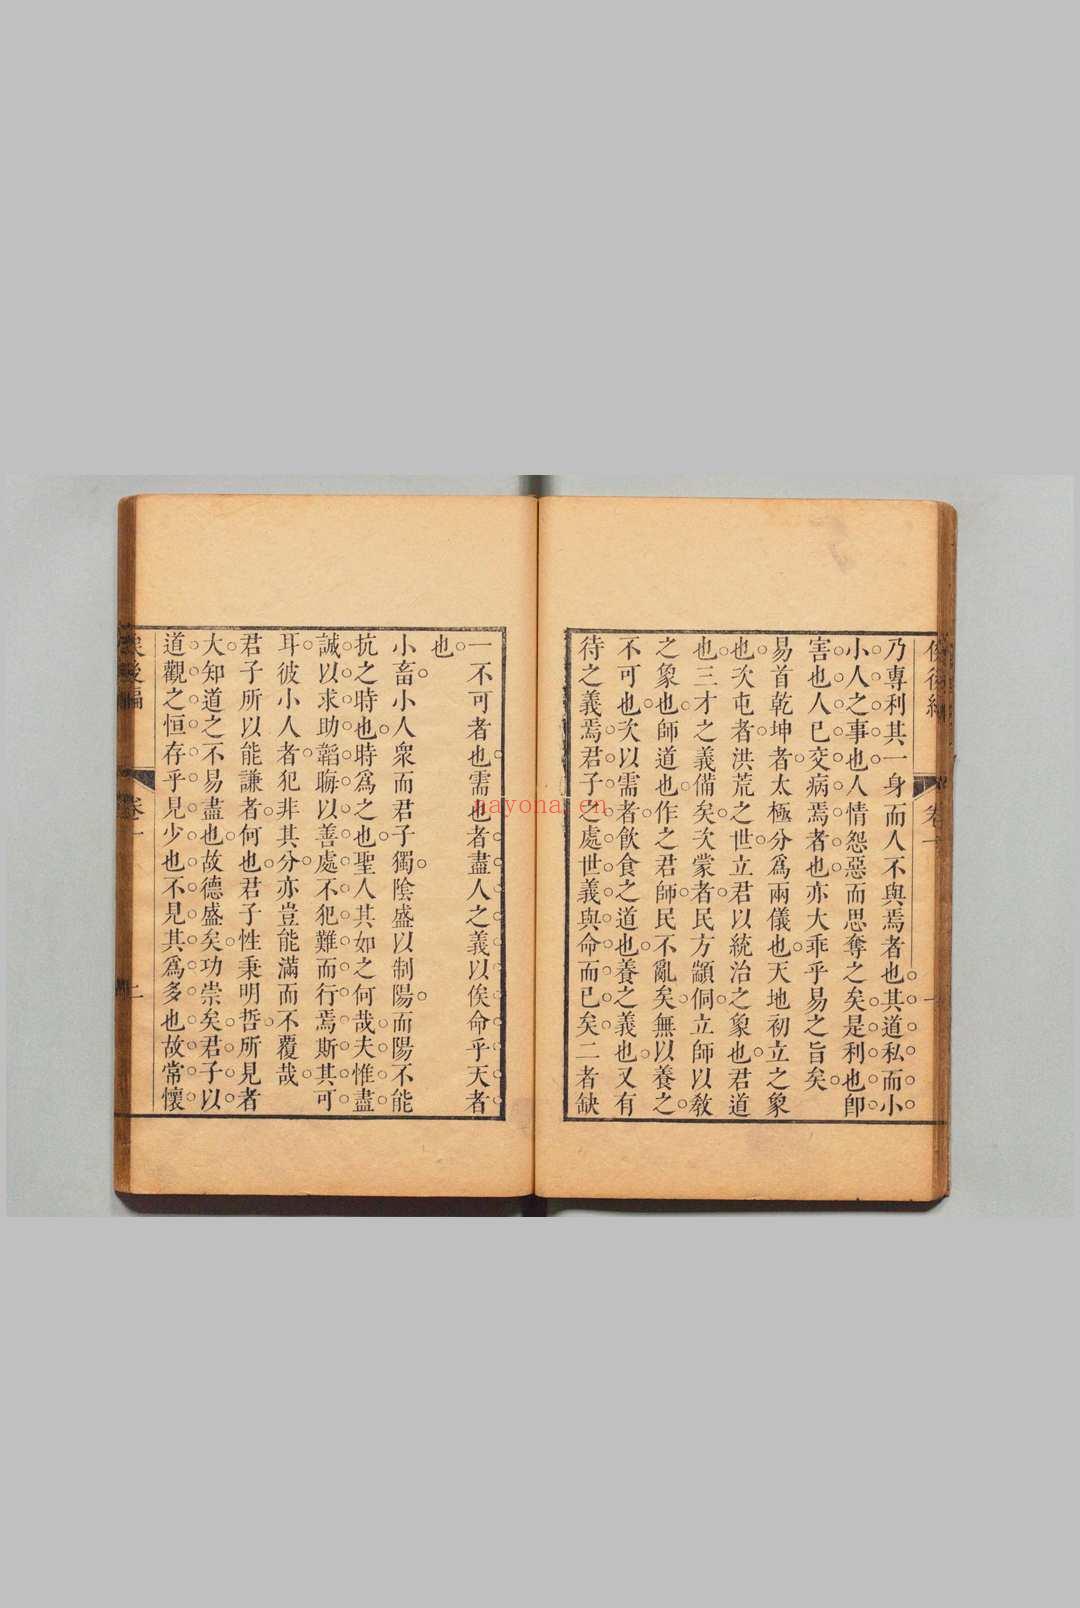 俟後編
卷一
乃專利其一身而人不與焉者也其道私而小
小人之事也人情怨惡而思奪之矣是利也卽
害也人已交病焉者也亦大乖乎易之旨矣
易首乾坤者太極分爲兩儀也天地初立之象
也次屯者洪荒之世立君以統治之象也君道
也三才之義備矣次蒙者民方顓侗立師以敎
之象也師道也作之君師民不亂矣無以養之
不可也次以需者飲食之道也養之義也又有
待之義焉君子之處世義與命而已矣二者缺
一不可者也需也者盡人之義以俟命乎天者
也
小畜小人衆而君子獨陰盛以制陽而陽不能
抗之時也時爲之也聖人其如之何哉夫惟盡
誠以求助韜晦以善處不犯難而行焉斯其可
耳彼小人者犯非其分亦豈能滿而不覆哉
君子所以能謙者何也君子性秉明哲所見者
大知道之不易盡也故德盛矣功崇矣君子以
道觀之恒存乎見少也不見其爲多也故常懷
俟後編
卷一
二
nayona.cn